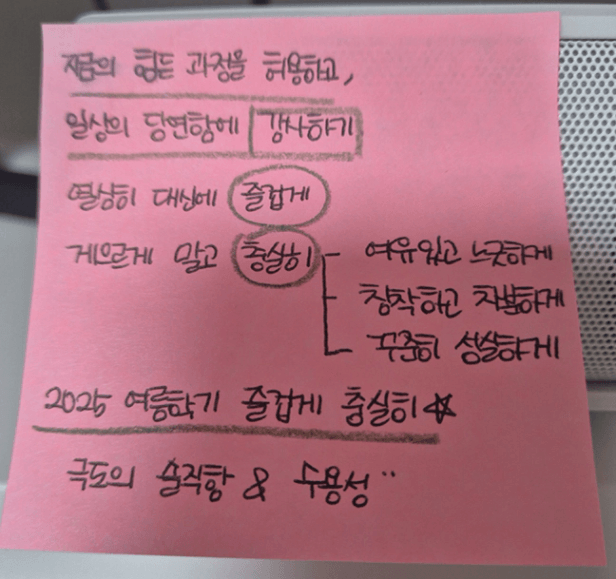 지금의 힘든 과정을 허용하고,
일상의 당연함에 감사하기
열심히 대신에 즐겁게
게으르게 말고 충실히 - 여유있고 느긋하게
- 침착하고 차분하게
꾸준히 성실하게
2025 여름학기 즐겁게 충실히 ☆
극도의 솔직함 & 수용성